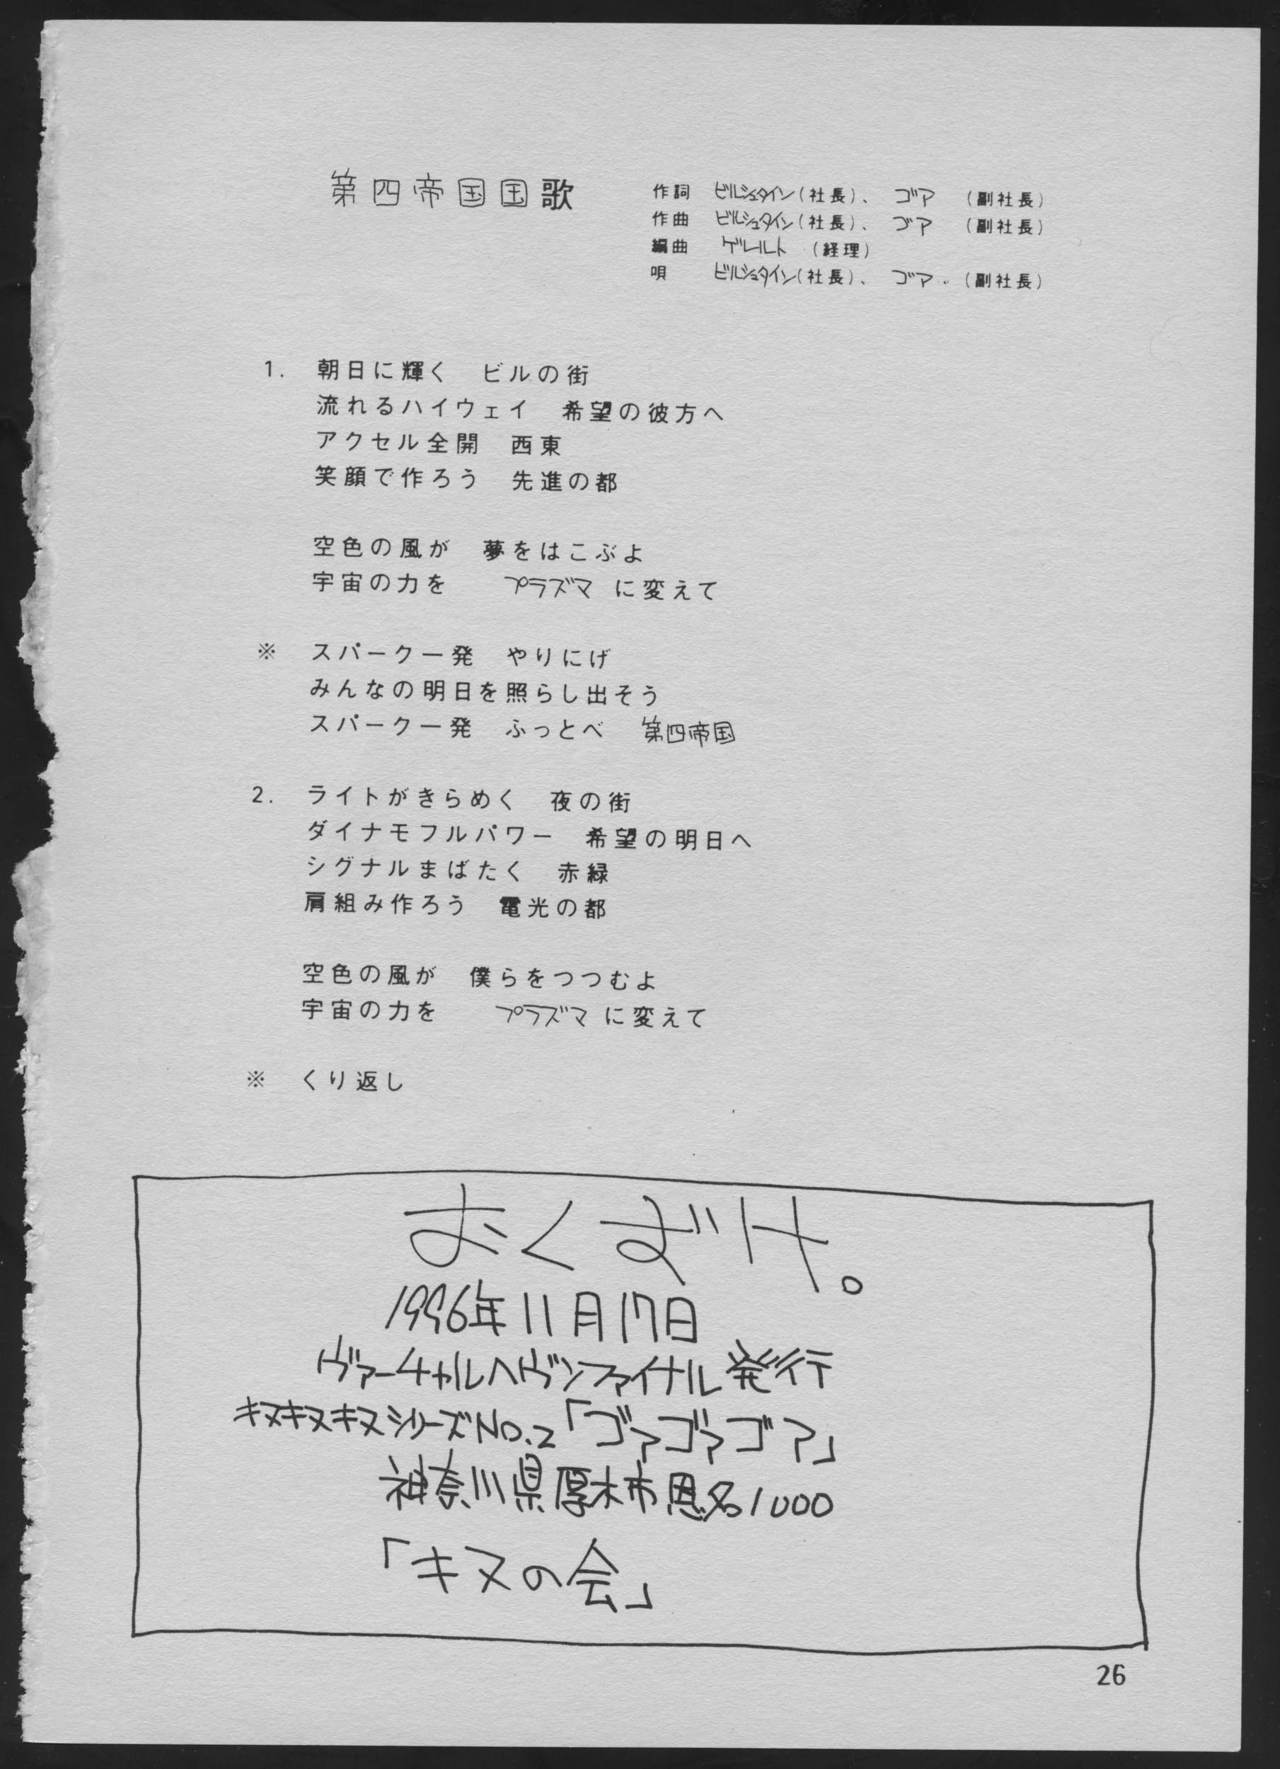 第四帝国国歌
作詞 ビルシュタイン(社長)、ゴア (副社長)
作曲 ビルシュタイン(社長)、ゴア (副社長)
編曲 ゲルルト (経理)
唄 ビルシュタイン(社長)、ゴア、(副社長)
1. 朝日に輝く ビルの街
流れるハイウェイ 希望の彼方へ
アクセル全開 西東
笑顔で作ろう 先進の都
空色の風が 夢をはこぶよ
宇宙の力を プラズマ に変えて
※ スパーク一発 やりにげ
みんなの明日を照らし出そう
スパーク一発 ふっとべ 第四帝国
2. ライトがきらめく 夜の街
ダイナモフルパワー 希望の明日へ
シグナルまばたく 赤緑
肩組み作ろう 電光の都
空色の風が 僕らをつつむよ
宇宙の力を プラズマ に変えて
※ くり返し
おくずけ。
1996年11月17日
ヴァーチャルヘヴンファイナル発行
キヌキヌキヌシリーズNO.2「ゴアゴアゴア」
神奈川県厚木市恩名1000
「キヌの会」
26